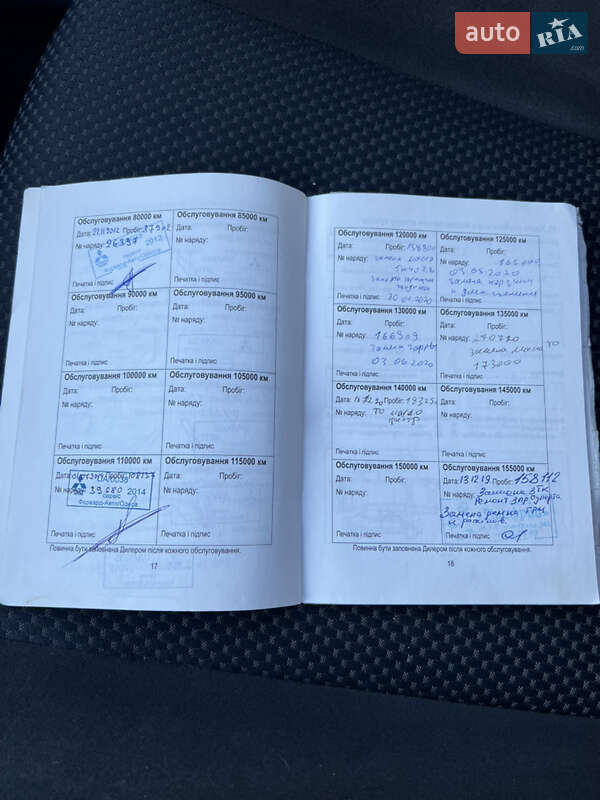 auto RIA
.com
Обслуговування 80000 км
Дата: 21.11.2012 Пробіг: 87902
№ наряду: 26397
2012
Печатка і підпис
Обслуговування 85000 км
Дата: Пробіг:
№ наряду:
Печатка і підпис
Обслуговування 90000 км
Дата: Пробіг:
№ наряду:
Печатка і підпис
Обслуговування 95000 км
Дата: Пробіг:
№ наряду:
Печатка і підпис
Обслуговування 100000 км
Дата: Пробіг:
№ наряду:
Печатка і підпис
Обслуговування 105000 км
Дата: Пробіг:
№ наряду:
Печатка і підпис
Обслуговування 110000 км
Дата: Пробіг:
№ наряду: 39680 2014
сервіс
Форвард-Авто/Одеса
Печатка і підпис
Обслуговування 115000 км
Дата: Пробіг:
№ наряду:
Печатка і підпис
Повинна бути заповнена Дилером після кожного обслуговування.
17
Обслуговування 120000 км
Дата: Пробіг:
№ наряду: замена
замена
Печатка і підпис 30.01.2020
Обслуговування 125000 км
Дата: Пробіг:
№ наряду: 165000
03.03.2020
замена
Печатка і підпис
Обслуговування 130000 км
Дата: Пробіг:
№ наряду: 166909
замена
03.06.2020
Печатка і підпис
Обслуговування 135000 км
Дата: Пробіг:
№ наряду: 290720
замена масла ТО
173000
Печатка і підпис
Обслуговування 140000 км
Дата: Пробіг:
№ наряду: ТО
Печатка і підпис
Обслуговування 145000 км
Дата: Пробіг:
№ наряду:
Печатка і підпис
Обслуговування 150000 км
Дата: Пробіг:
№ наряду:
Печатка і підпис
Обслуговування 155000 км
Дата: 13.12.19 Пробіг: 158112
№ наряду:
Ремонт
Замена ремня ГРМ
и роликов.
Печатка і підпис
Повинна бути заповнена Дилером після кожного обслуговування.
18